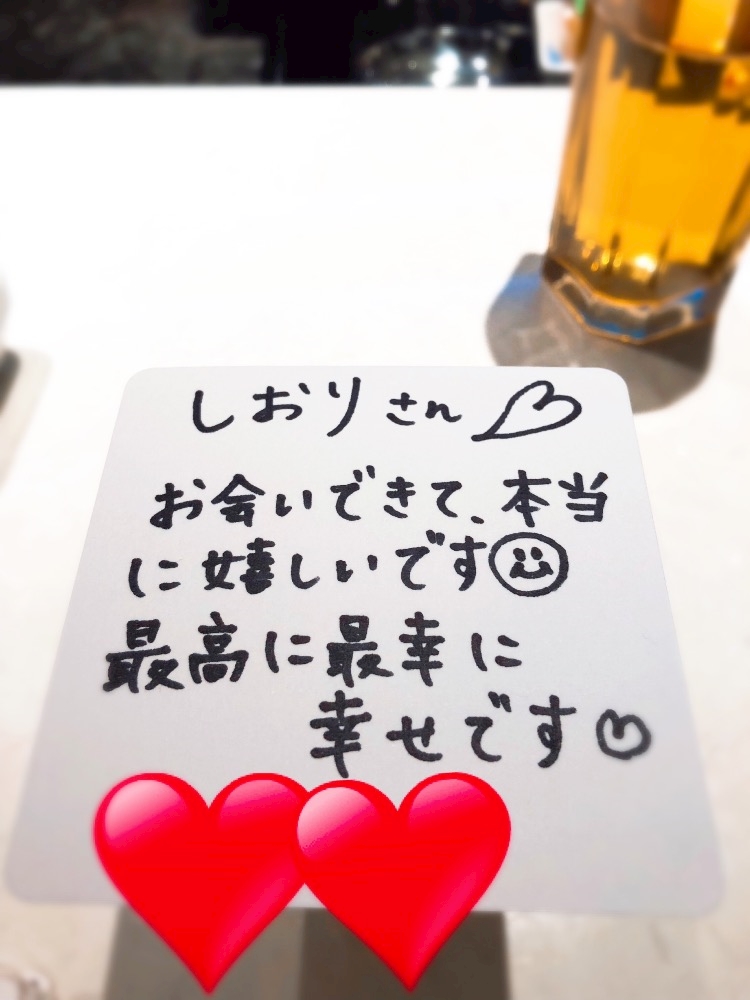 しおりさん♡
お会いできて、本当
に嬉しいです☺
最高に最幸に
幸せです♡